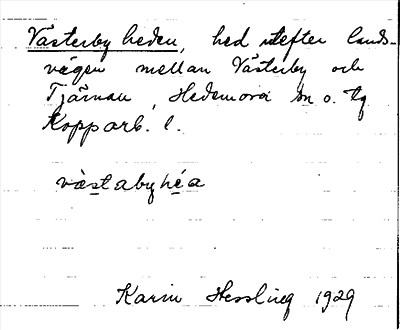 Västerby heden, hed utefter lands-
vägen mellan Västerby och
Tjärnan, Hedemora sn o. tg
Kopparb. l.
væstabyhéa
Karin Hessling 1929